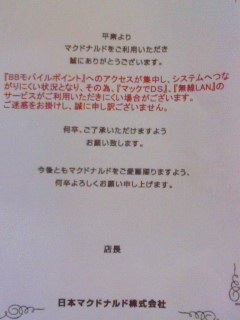 平素より
マクドナルドをご利用いただき
誠にありがとうございます。
『BBモバイルポイント』へのアクセスが集中し、システムへつな
がりにくい状況となり、その為、『マックでDS』、『無線LAN』の
サービスがご利用いただきにくい場合がございます。
ご迷惑をお掛けし、誠に申し訳ございません。
何卒、ご了承いただけますよう
お願い致します。
今後ともマクドナルドをご愛顧賜りますよう、
何卒よろしくお願い申し上げます。
店長
日本マクドナルド株式会社